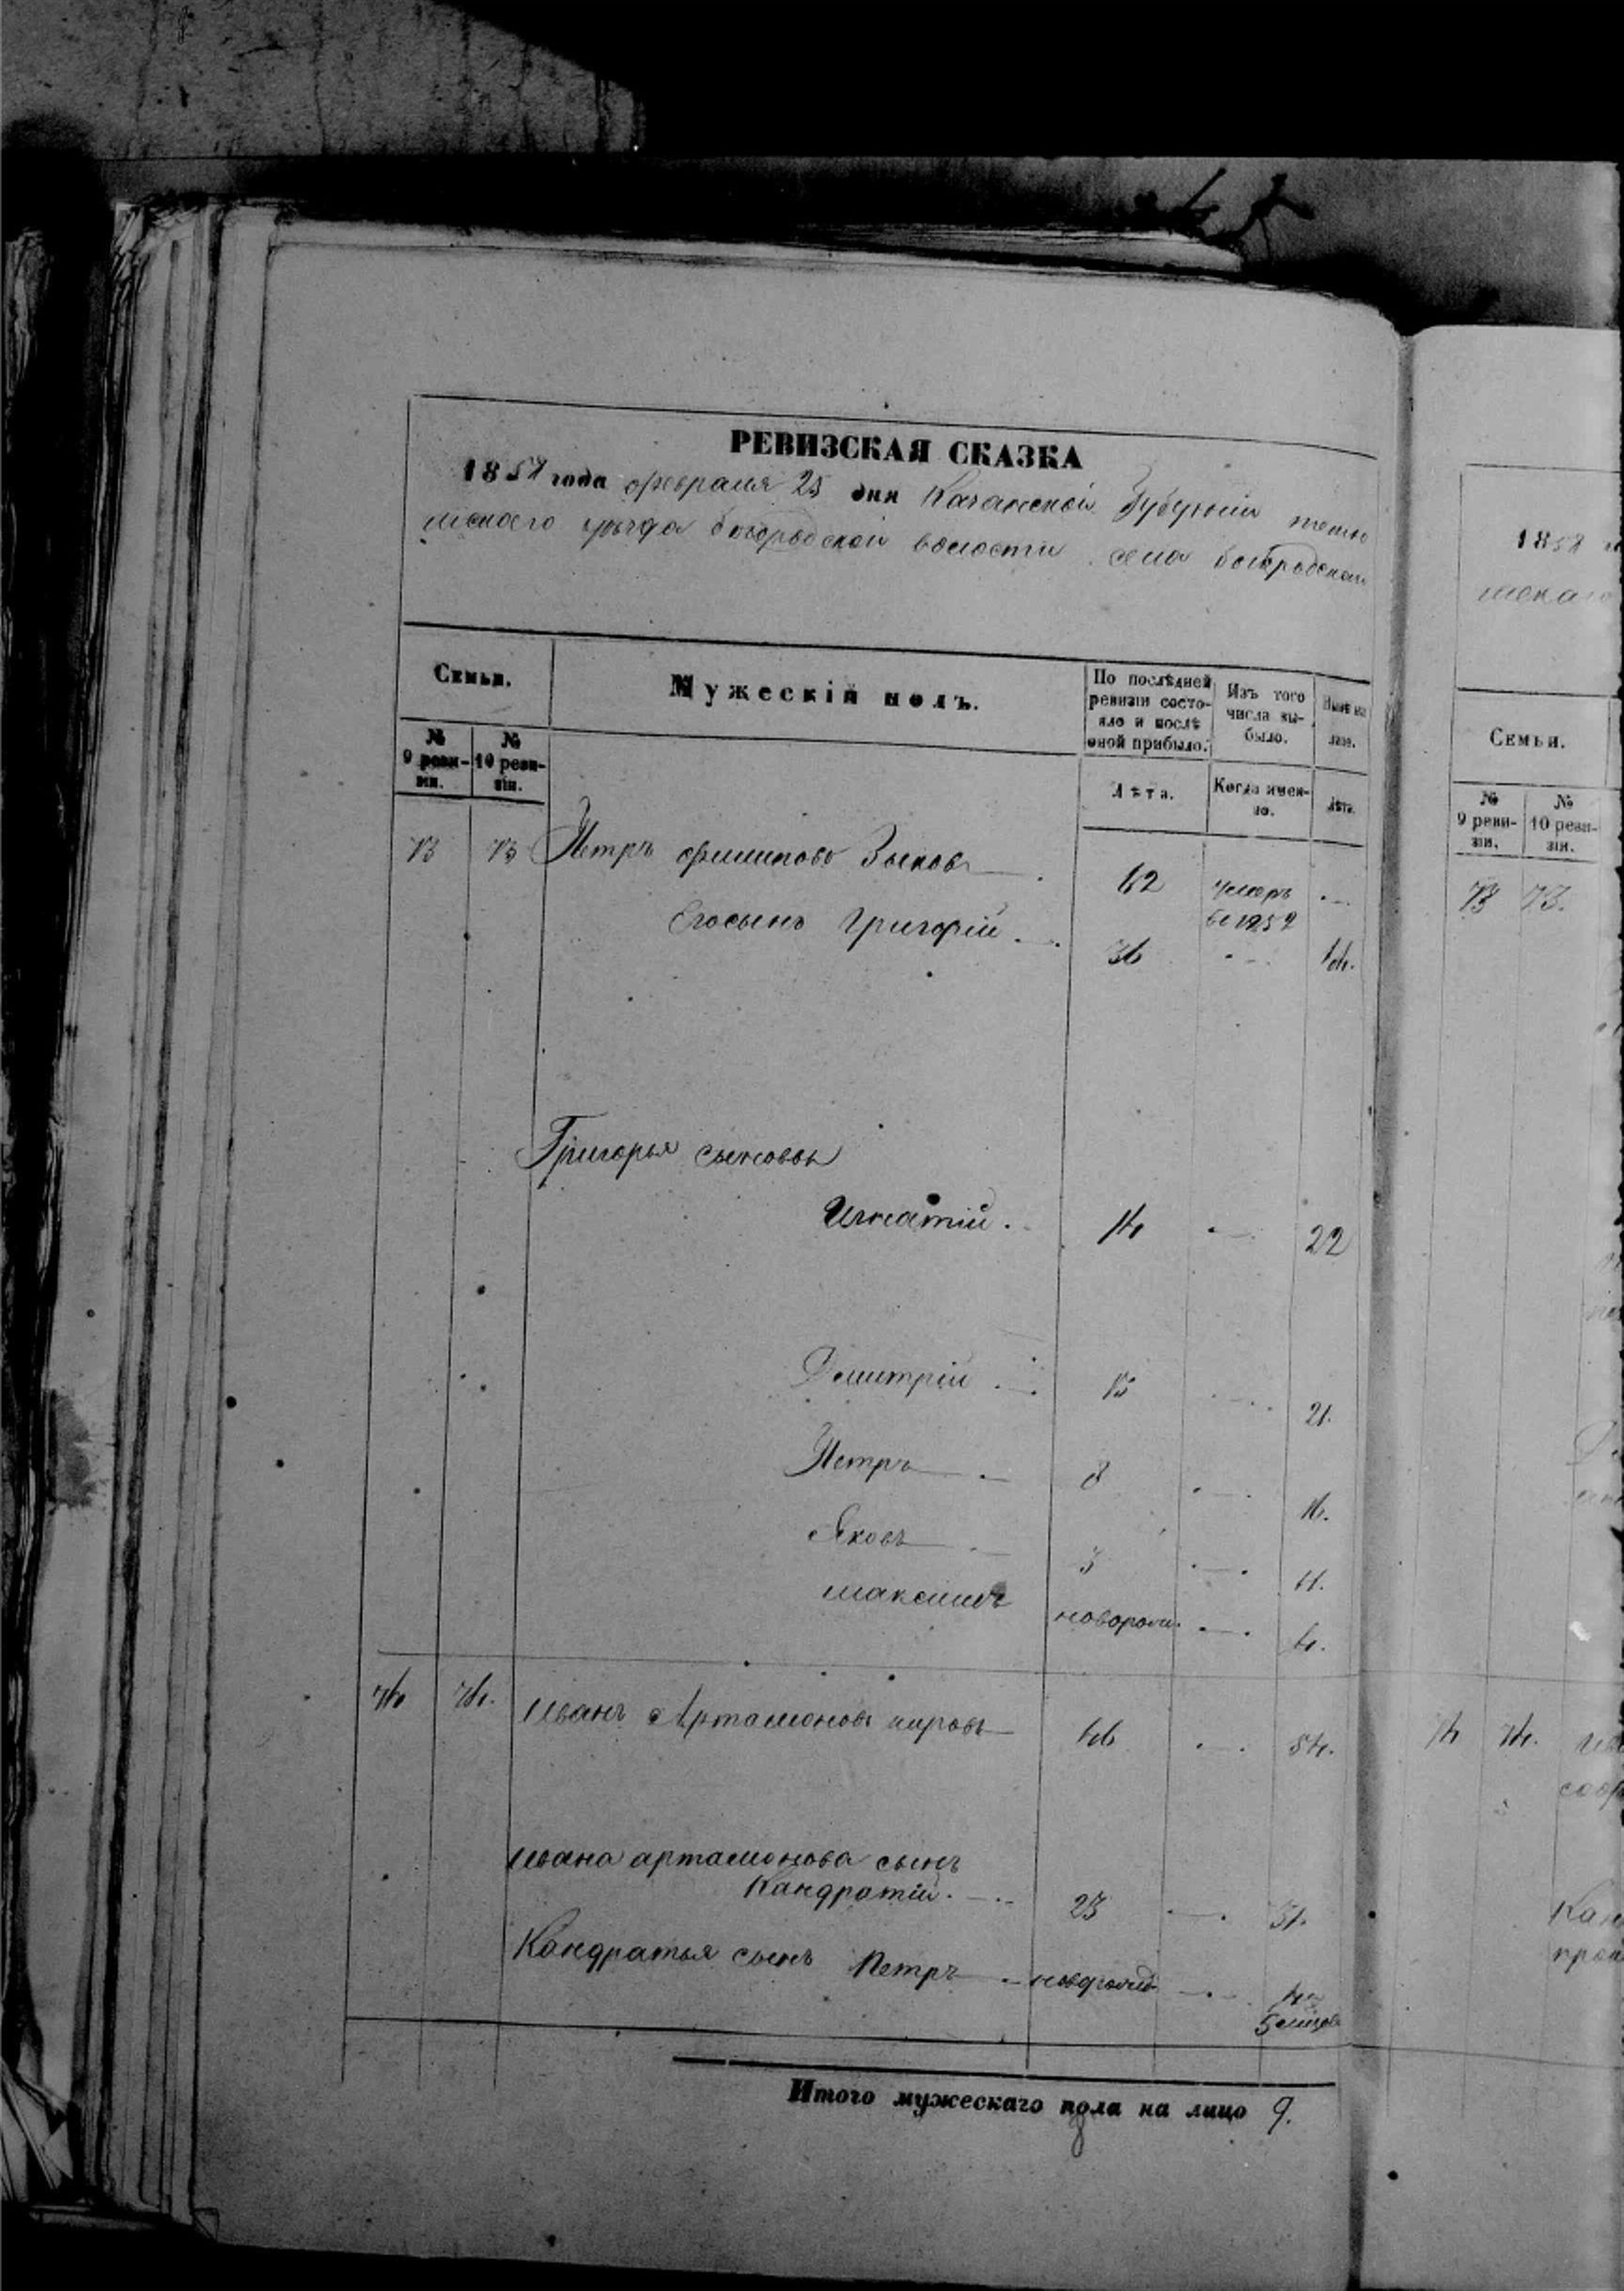 РЕВИЗСКАЯ СКАЗКА
1858 года февраля 25 дня Казанской Губернии тетю
шскаго уѣзда богородской волости села богородскаго
Семьи.
Мужескій полъ.
По послѣдней ревизіи состояло и послѣ оной прибыло.
Изъ того числа выбыло.
Нынѣ на лицо.
№ 9 ревизіи.
№ 10 ревизіи.
Лѣта.
Когда именно.
Лѣта.
73 73 Петръ филиповъ Зыковъ 62 умеръ
въ 1852
Его сынъ Григорій 36 44.
Григорья сыновья
Игнатій. 14 22
Дмитрій 13 21.
Петръ 8 16.
Яковъ 3 11.
Максимъ новорож. 4.
74 74. Иванъ Артамоновъ 46 54.
Ивана артамонова сынъ
Кандратій. 23 31.
Кандратья сынъ Петръ новорожд
5 мѣсцов
Итого мужескаго пола на лицо 9.
1858
шскаго
Семьи.
№ 9 ревизіи.
№ 10 ревизіи.
73 73.
74 74.